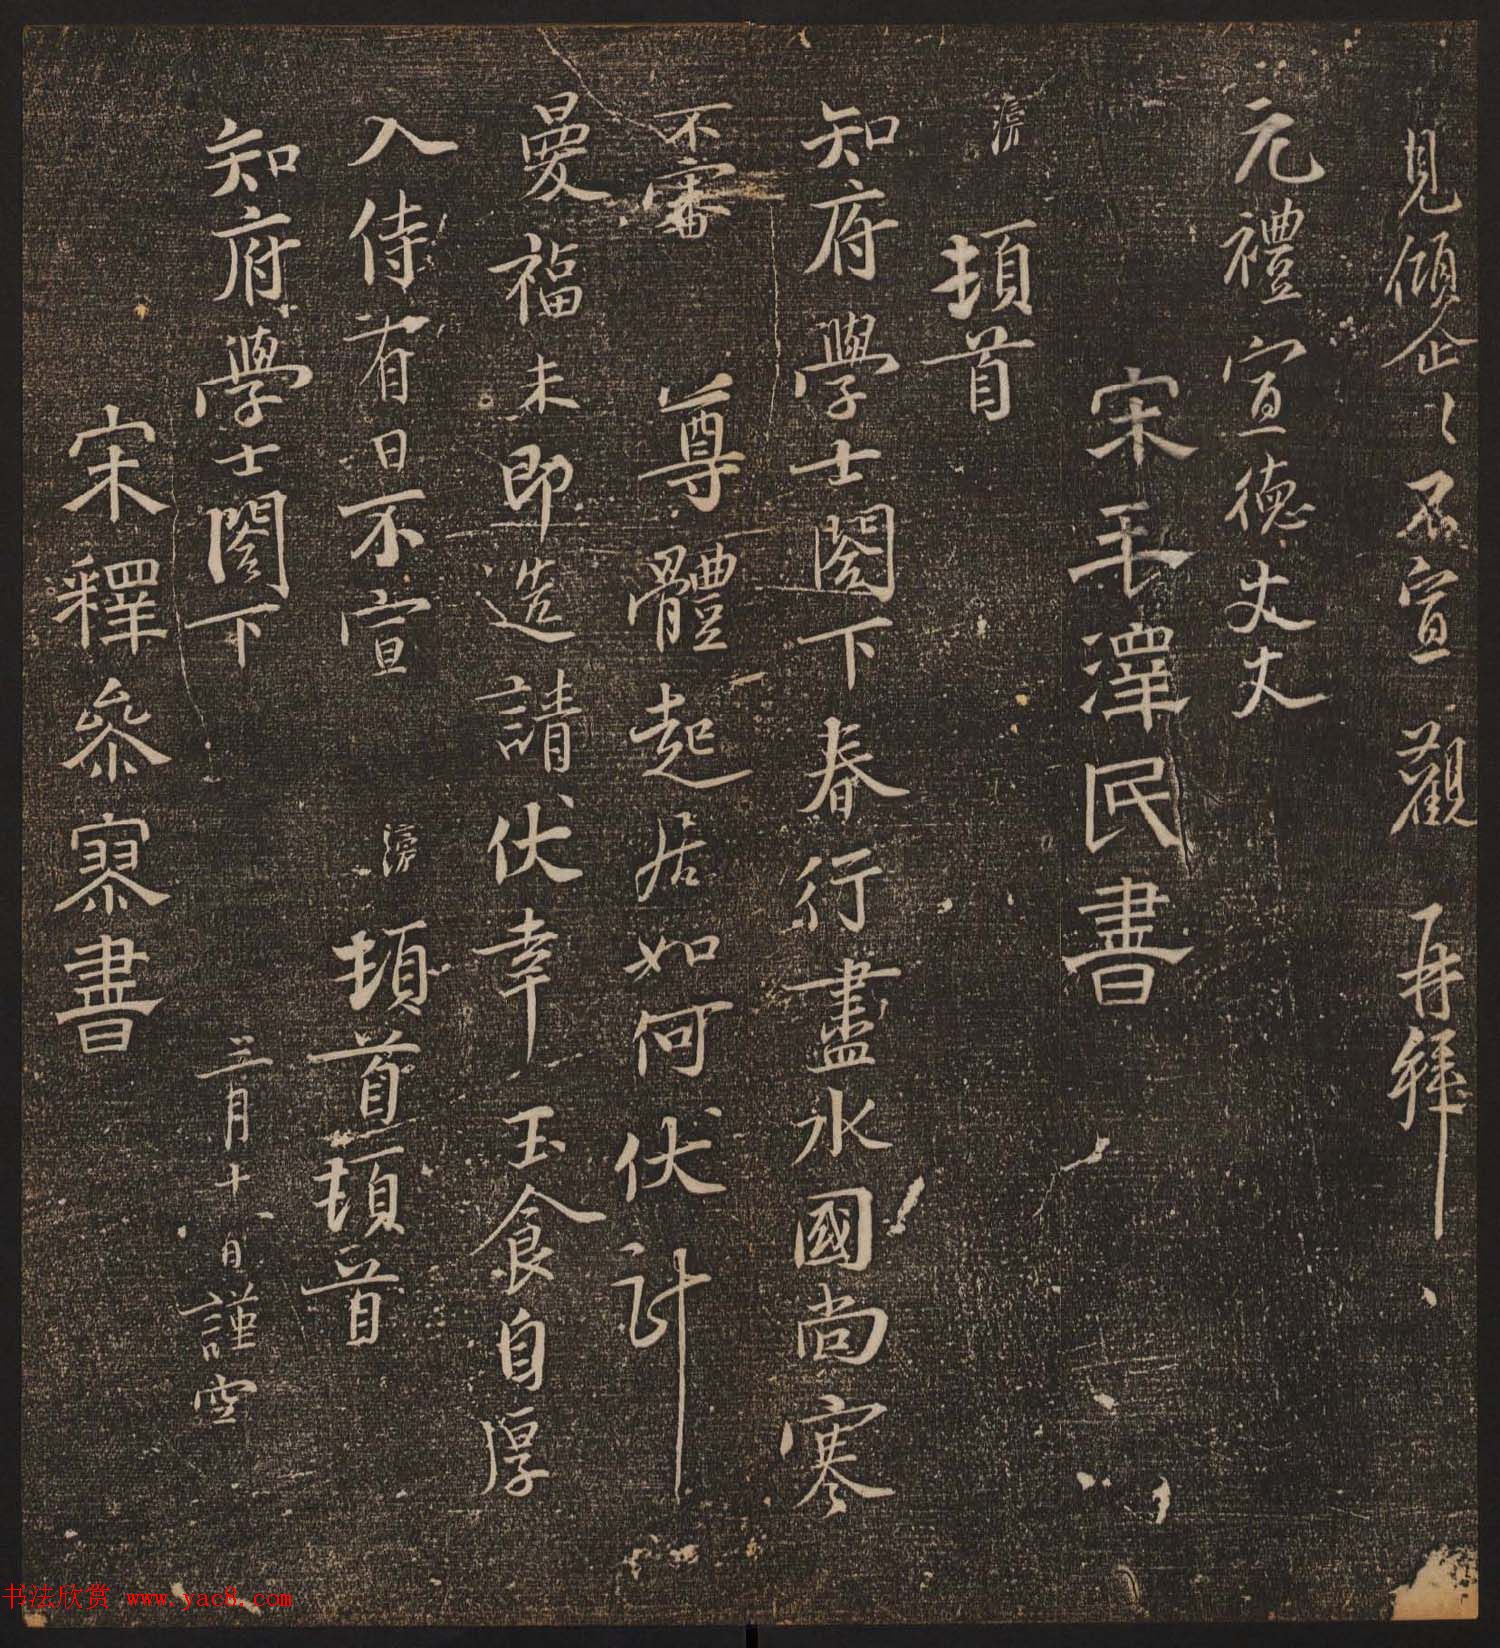 見傾企〻不宣觀再拜
元禮宣德丈丈
宋毛澤民書
滂頓首
知府學士閣下春行盡水國尚寒
不審尊體起居如何伏計
曼福未即造請伏幸玉食自厚
入侍有日不宣滂頓首頓首
知府學士閣下三月十日謹空
宋釋參寥書
书法欣赏 www.yac8.com